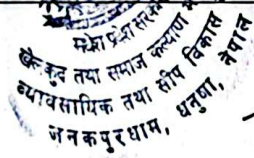 मधेश प्रदेश सरकार
खेलकुद तथा समाज कल्याण
व्यावसायिक तथा सीप विकास
जनकपुरधाम, धनुषा, नेपाल